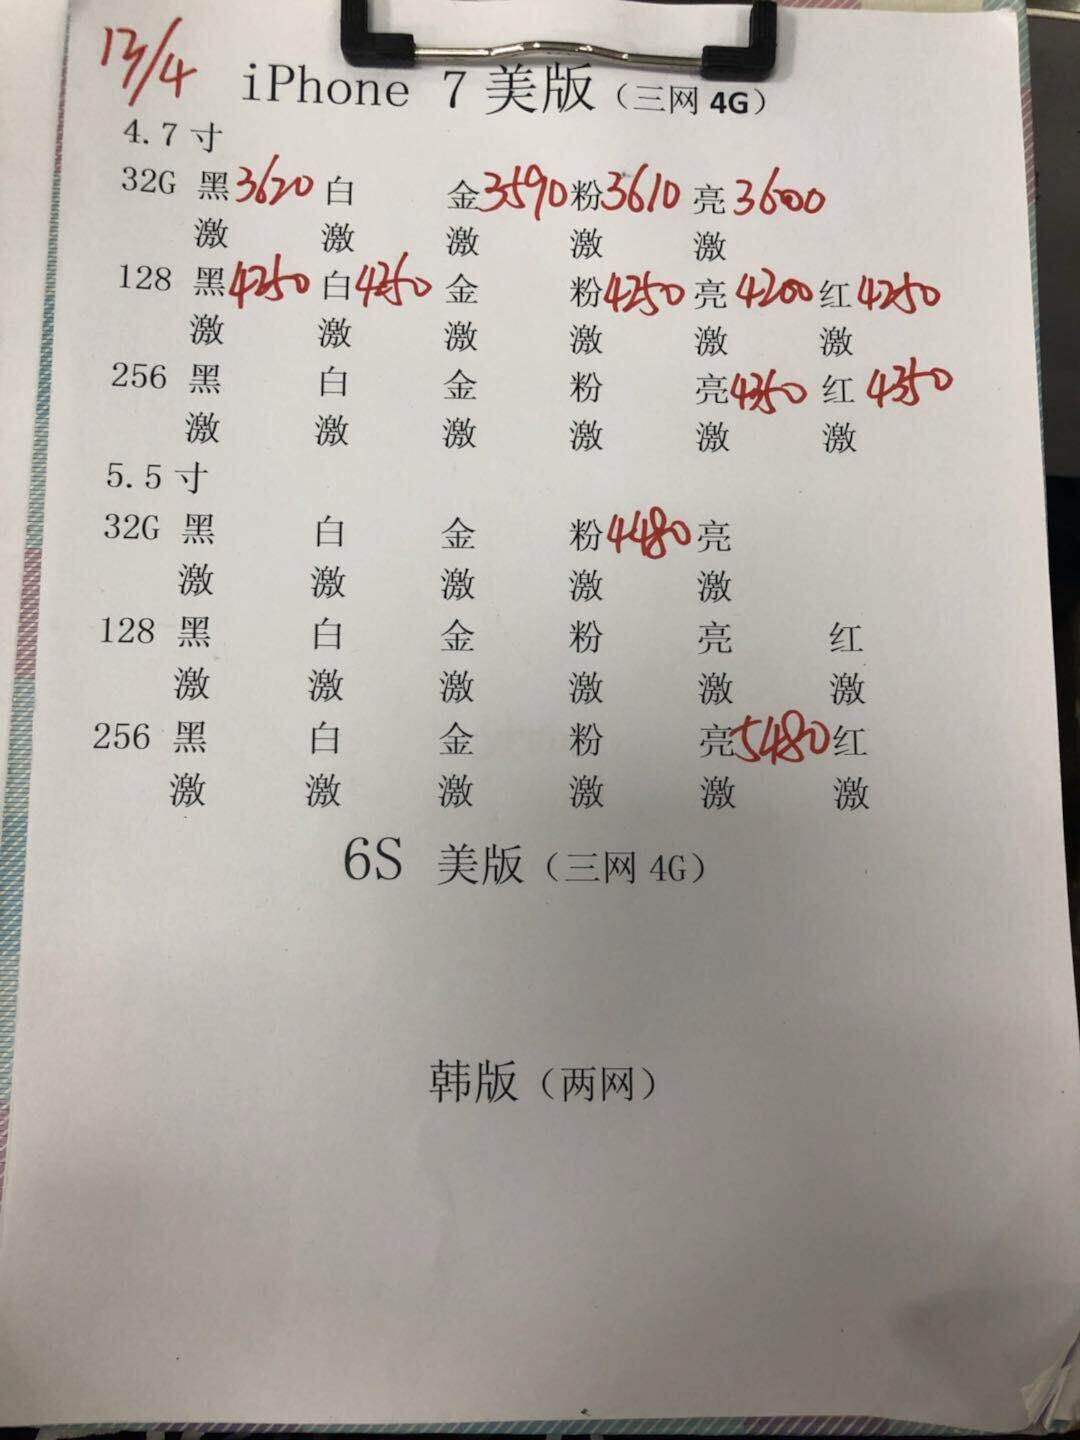 13/4
iPhone 7美版（三网4G）
4.7寸
32G 黑3620 白 金3590 粉3610 亮3600
激 激 激 激 激
128 黑4250 白4250 金 粉4250 亮4200 红4250
激 激 激 激 激 激
256 黑 白 金 粉 亮4350 红4350
激 激 激 激 激 激
5.5寸
32G 黑 白 金 粉4480 亮
激 激 激 激 激
128 黑 白 金 粉 亮 红
激 激 激 激 激 激
256 黑 白 金 粉 亮5480 红
激 激 激 激 激 激
6S 美版（三网4G）
韩版（两网）